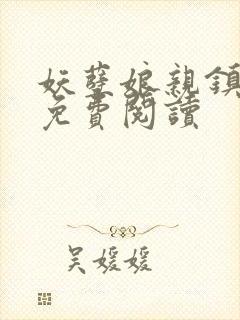 妖孽娘親鎮
免費閱讀
吴媛媛